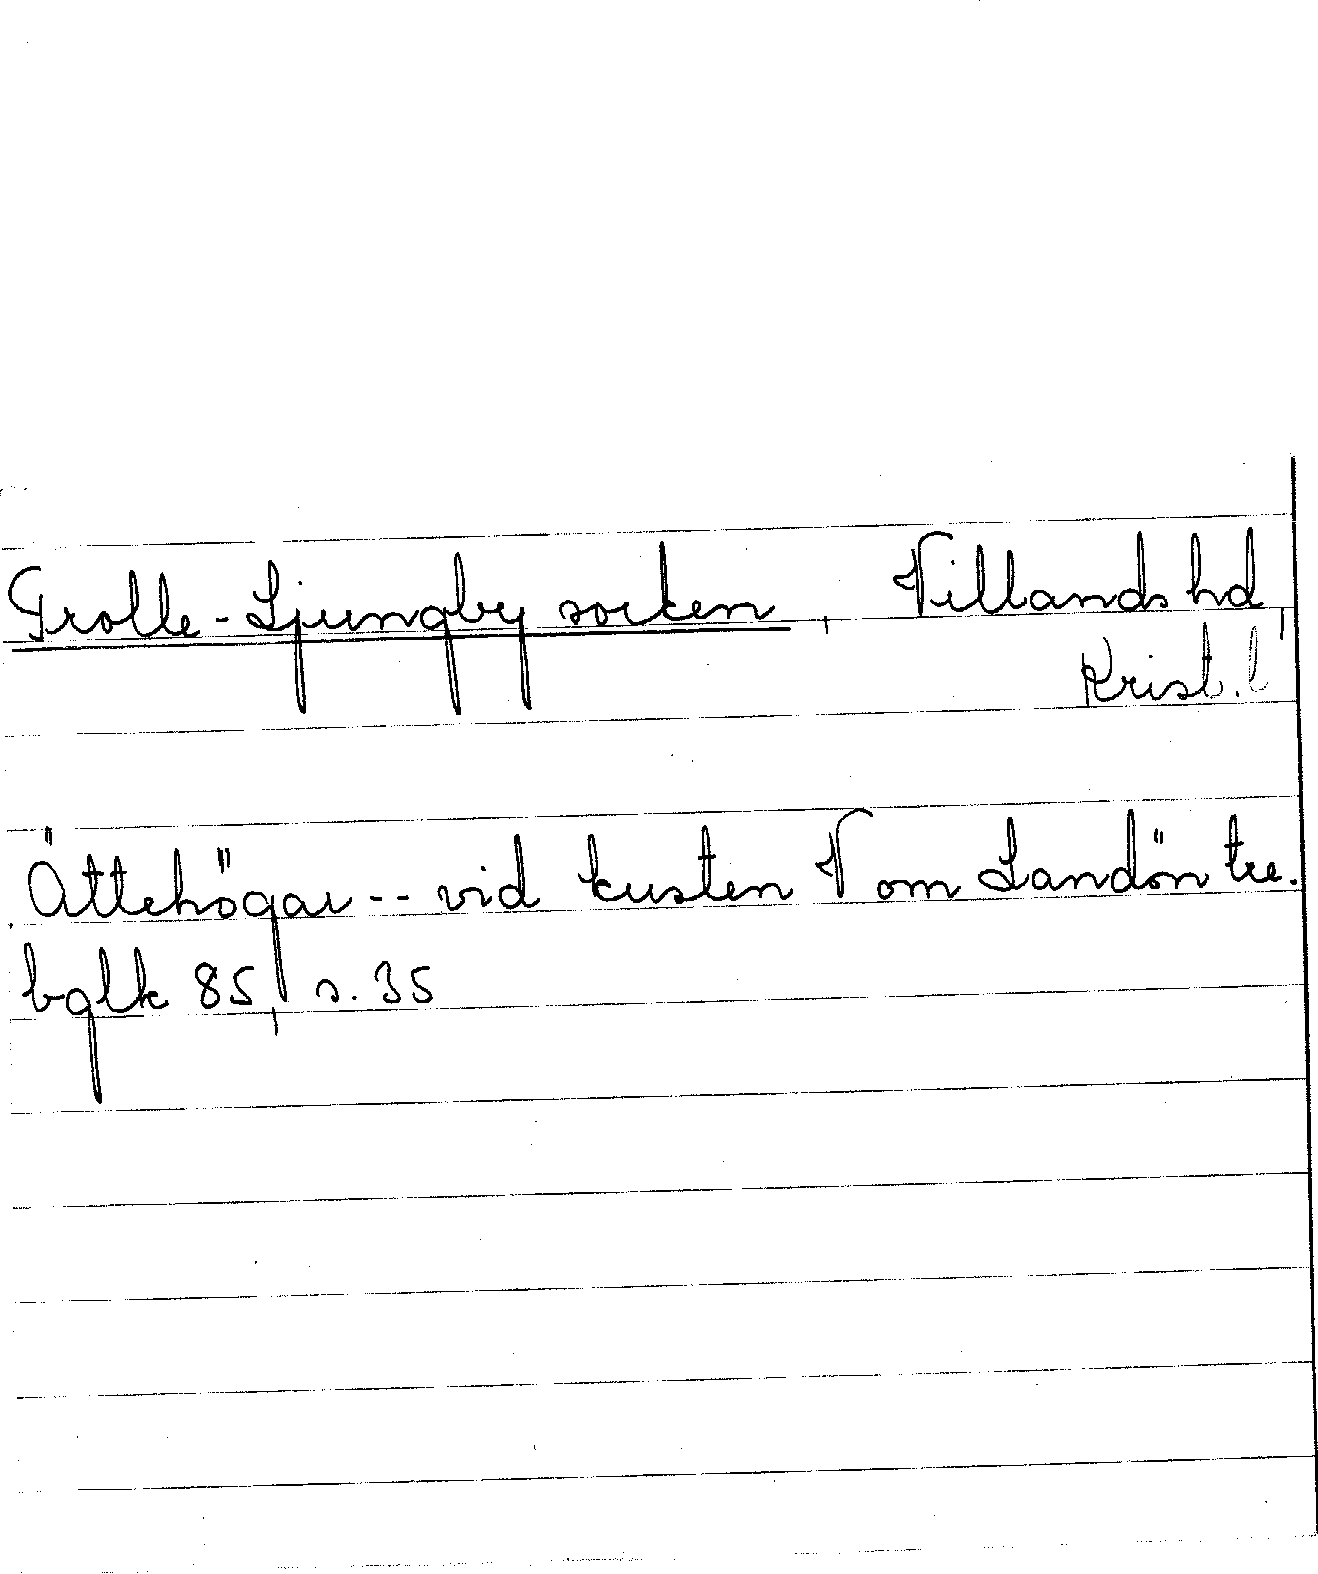 Trolle-Ljungby socken, Villands hd,
Krist. l
Ättehögar -- vid kusten V om Landön tre.
bglk 85, s. 35